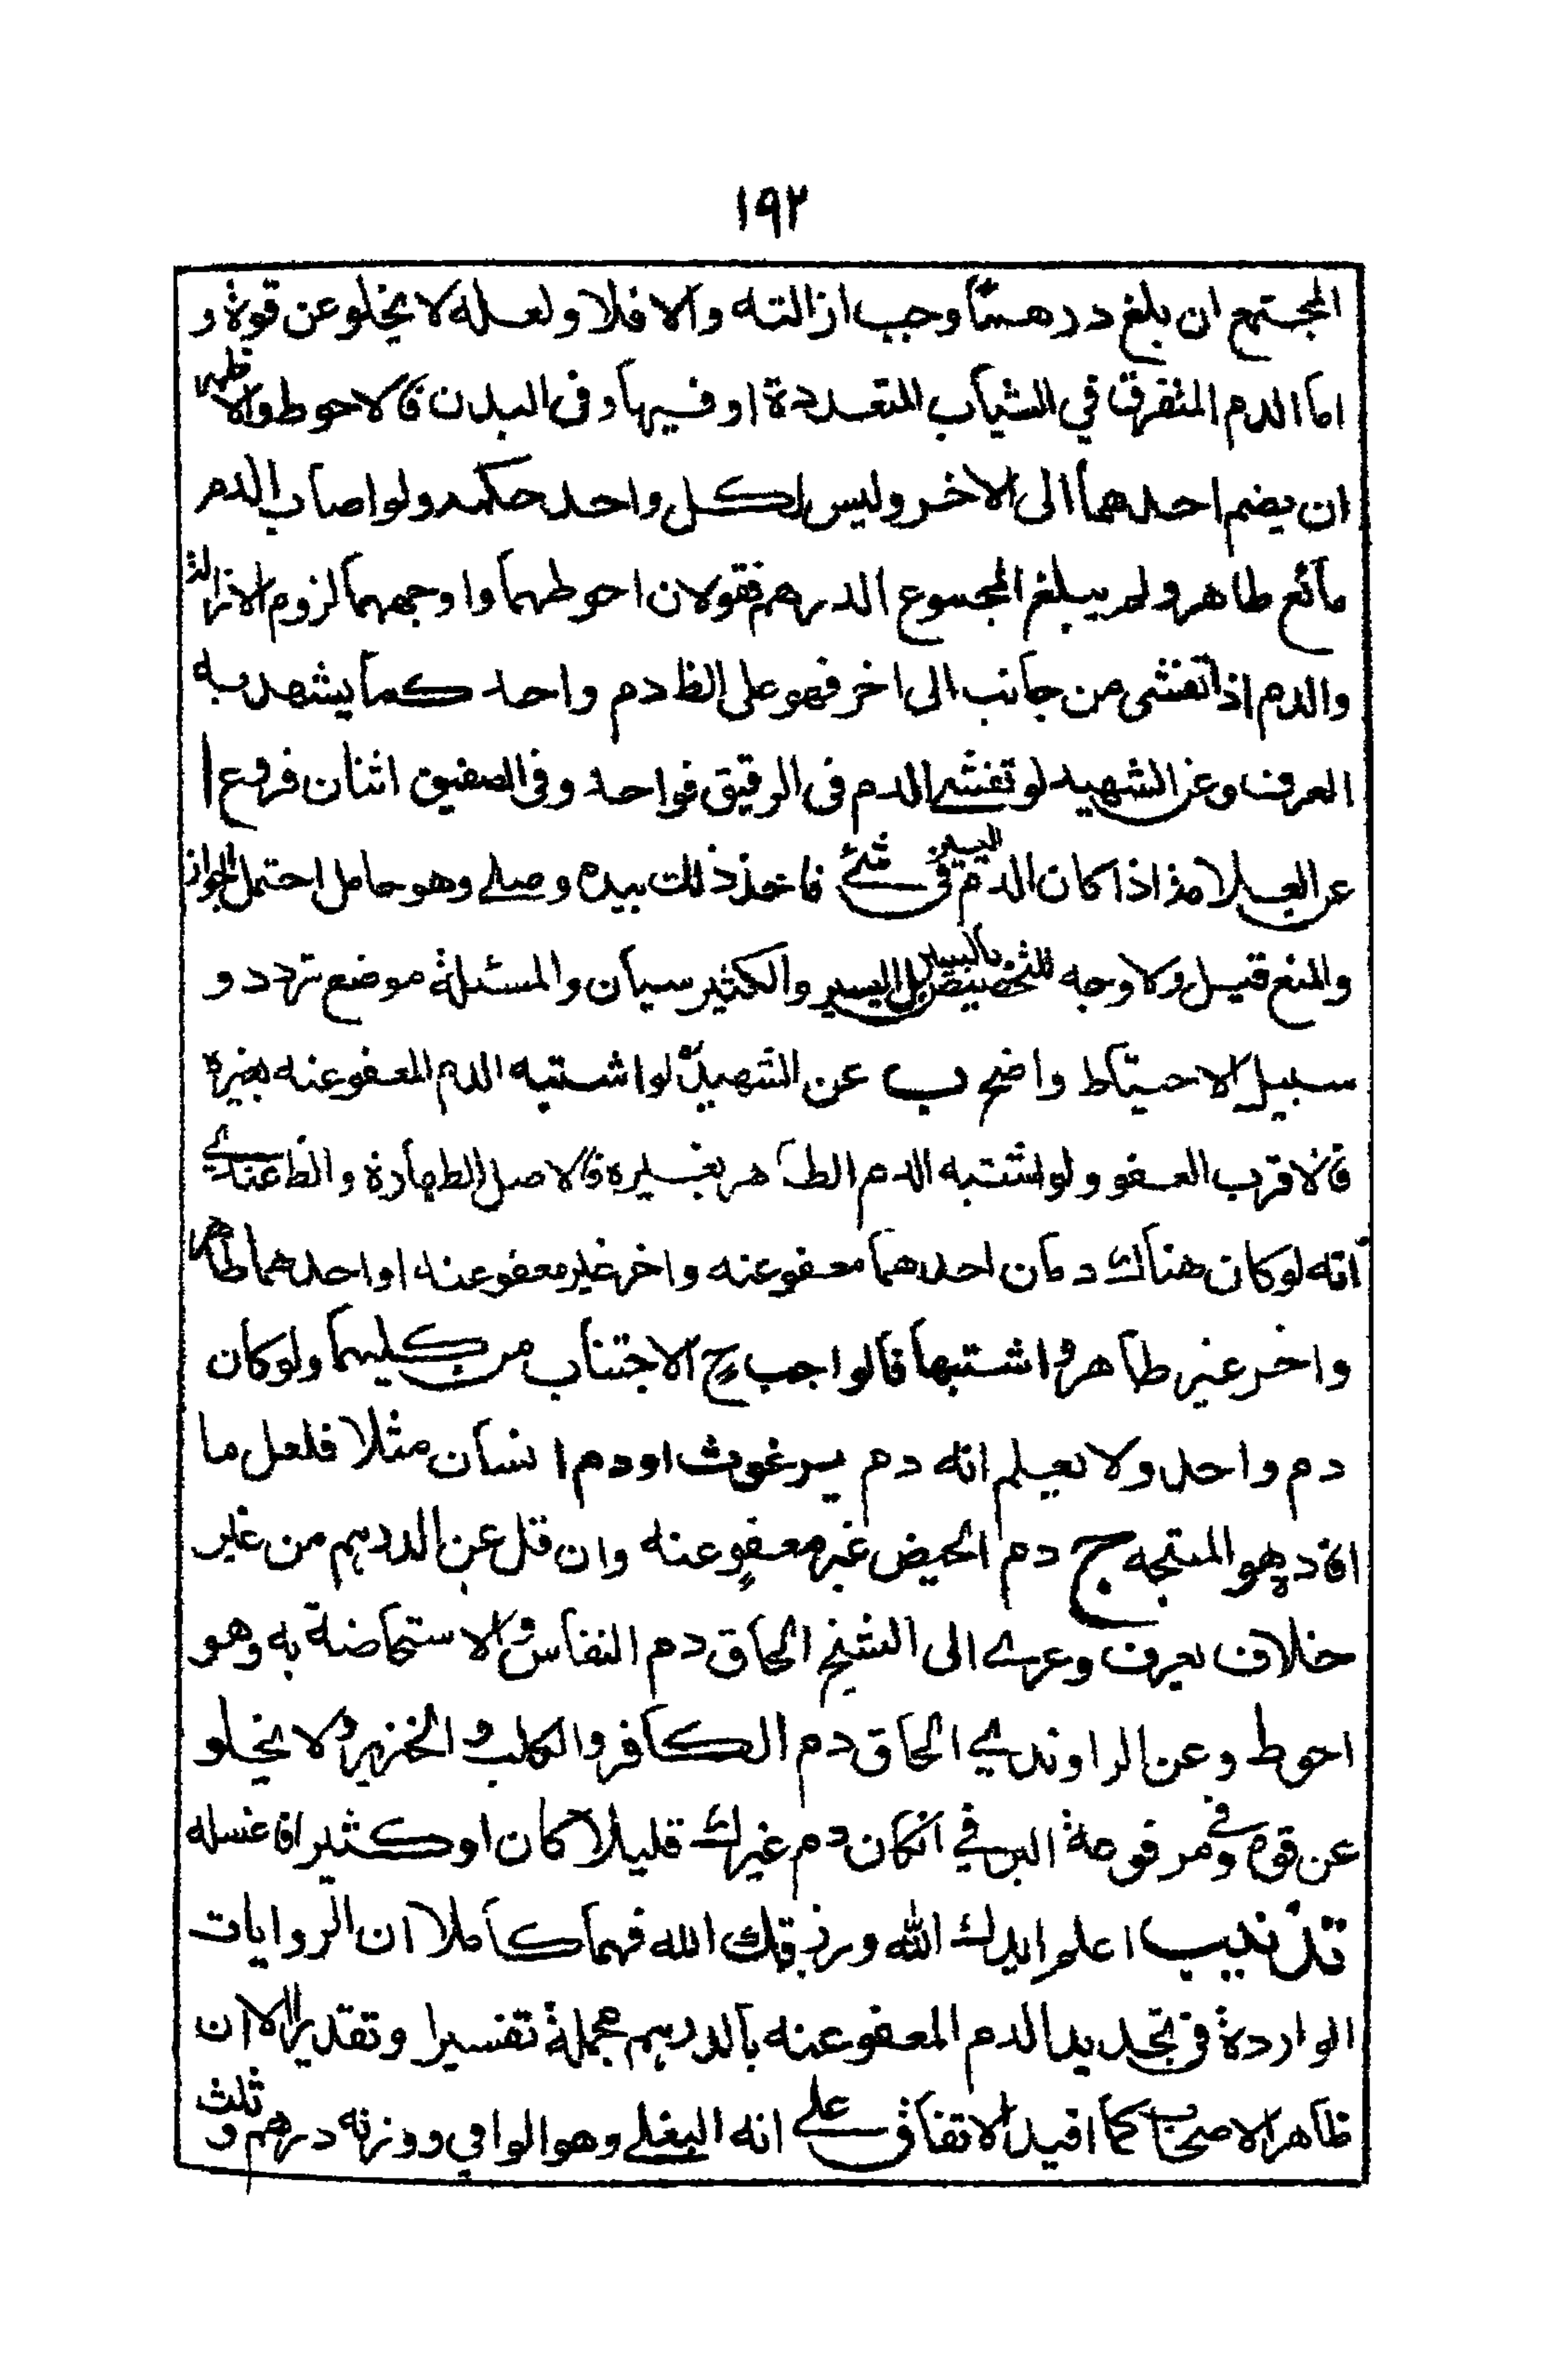 ١٩٢
المجتمع ان بلغ درهما وجب ازالته والا فلا ولعله لا يخلو عن قوة و
اما الدم المتفرق في الثياب المتعددة او فيها وفى البدن فالاحوط والاظهر
ان يضم احدهما الى الاخر وليس لكل واحد حكمه ولو اصاب الدم
مائع طاهر ولم يبلغ المجموع الدرهم فقولان احوطهما واوجههما لزوم الازالة
والدم اذا تفشى من جانب الى اخر فهو على الظ دم واحد كما يشهد به
العرف وعن الشهيد لو تفشى الدم فى الرقيق فواحد وفى الصفيق اثنان فروع ا
عن العلامة اذا كان الدم اليسير فى شئ فاخذ ذلك بيده وصلى وهو حامل احتمل الجواز
والمنع قيل ولا وجه للتخصيص باليسير بل اليسير والكثير سيان والمسئلة موضع تردد و
سبيل الاحتياط واضح ب عن الشهيد لو اشتبه الدم المعفو عنه بغيره
فالاقرب العفو ولو اشتبه الدم الطاهر بغيره فالاصل الطهارة والظ عندي
انه لو كان هناك دمان احدهما معفو عنه واخر غير معفو عنه او احدهما طاهر
واخر غير طاهر واشتبها فالواجب ح الاجتناب من كليهما ولو كان
دم واحد ولا يعلم انه دم برغوث او دم انسان مثلا فلعل ما
افاده هو المتجه ج دم الحيض غير معفو عنه وان قل عن الدرهم من غير
خلاف يعرف وعزى الى الشيخ الحاق دم النفاس والاستحاضة به وهو
احوط وعن الراوندي الحاق دم الكافر والكلب والخنزير ولا يخلو
عن قوة وفي مرفوعة البرقي ان كان دم غيرك قليلا كان او كثيرا فاغسله
تذنيب اعلم ايدك الله ورزقك الله فهما كاملا ان الروايات
الواردة فى تحديد الدم المعفو عنه بالدرهم مجملة تفسيرا وتقديرا الا ان
ظاهر الاصحاب كما افيد الاتفاق على انه البغلي وهو الوافي ووزنه درهم وثلث